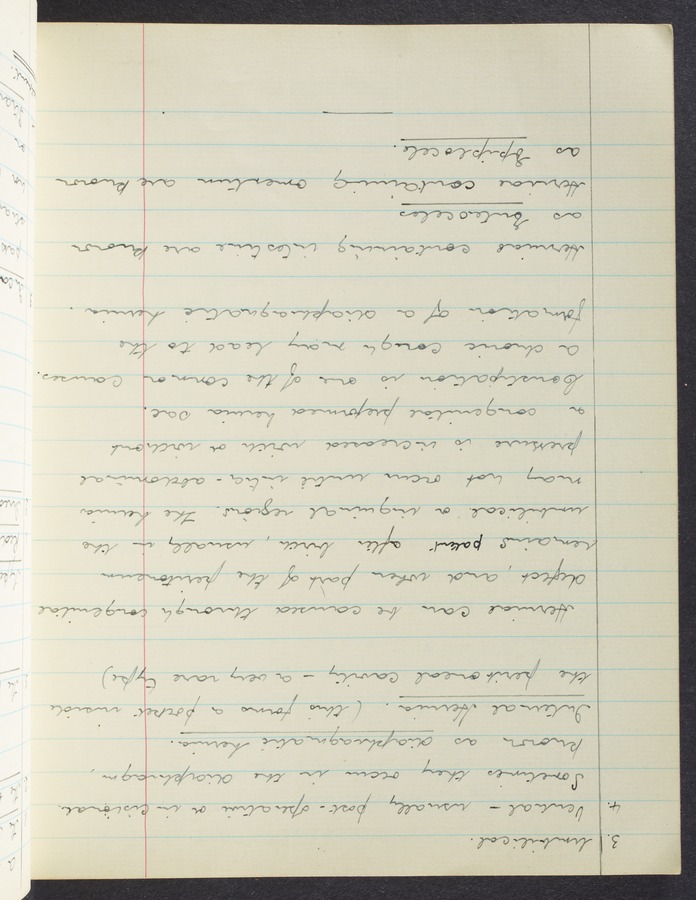 3. Umbilical.
4. Ventral - usually post-operative or incisional.
Sometimes they occur in the diaphragm,
known as diaphragmatic hernia.
Internal Hernia. (this forms a pocket inside
the peritoneal cavity - a very rare type)
Herniae can be caused through congenital
defect, and when part of the peritoneum
remains patent after birth, usually in the
umbilical or inguinal regions. The hernia
may not occur until intra-abdominal
pressure is increased with or without
a congenital preformed hernia sac.
Constipation is one of the common causes.
a chronic cough may lead to the
formation of a diaphragmatic hernia.
Herniae containing intestine are known
as Enteroceles
Herniae containing omentum are known
as Epiplocele.